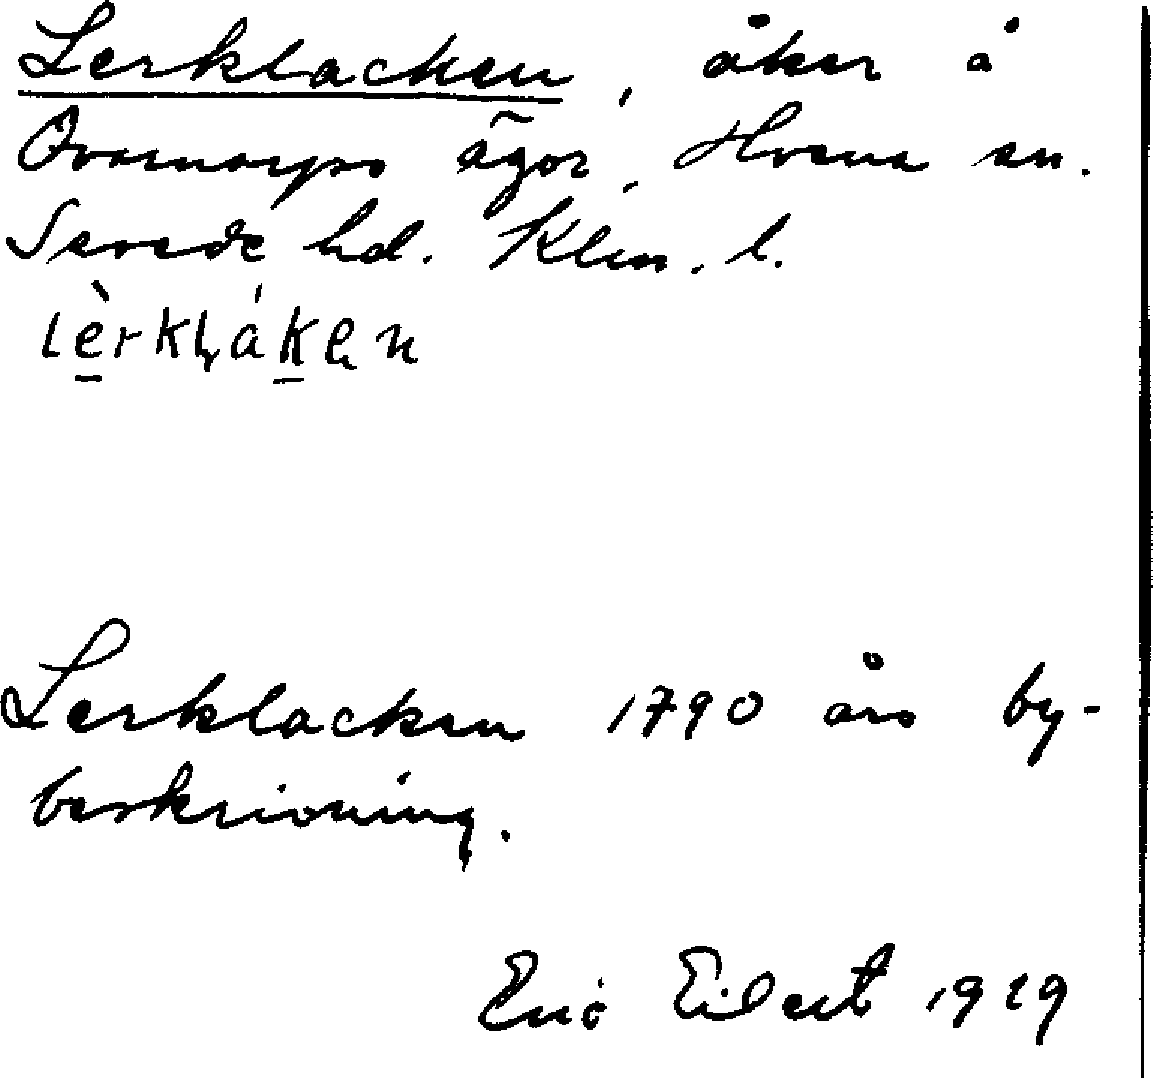 Lerklacken, åker å
ägor, Hvena sn.
Sevede hd. Klm. l.
lèrklákен
Lerklacken 1790 års by-
beskrivning.
Eric Eilert 1929